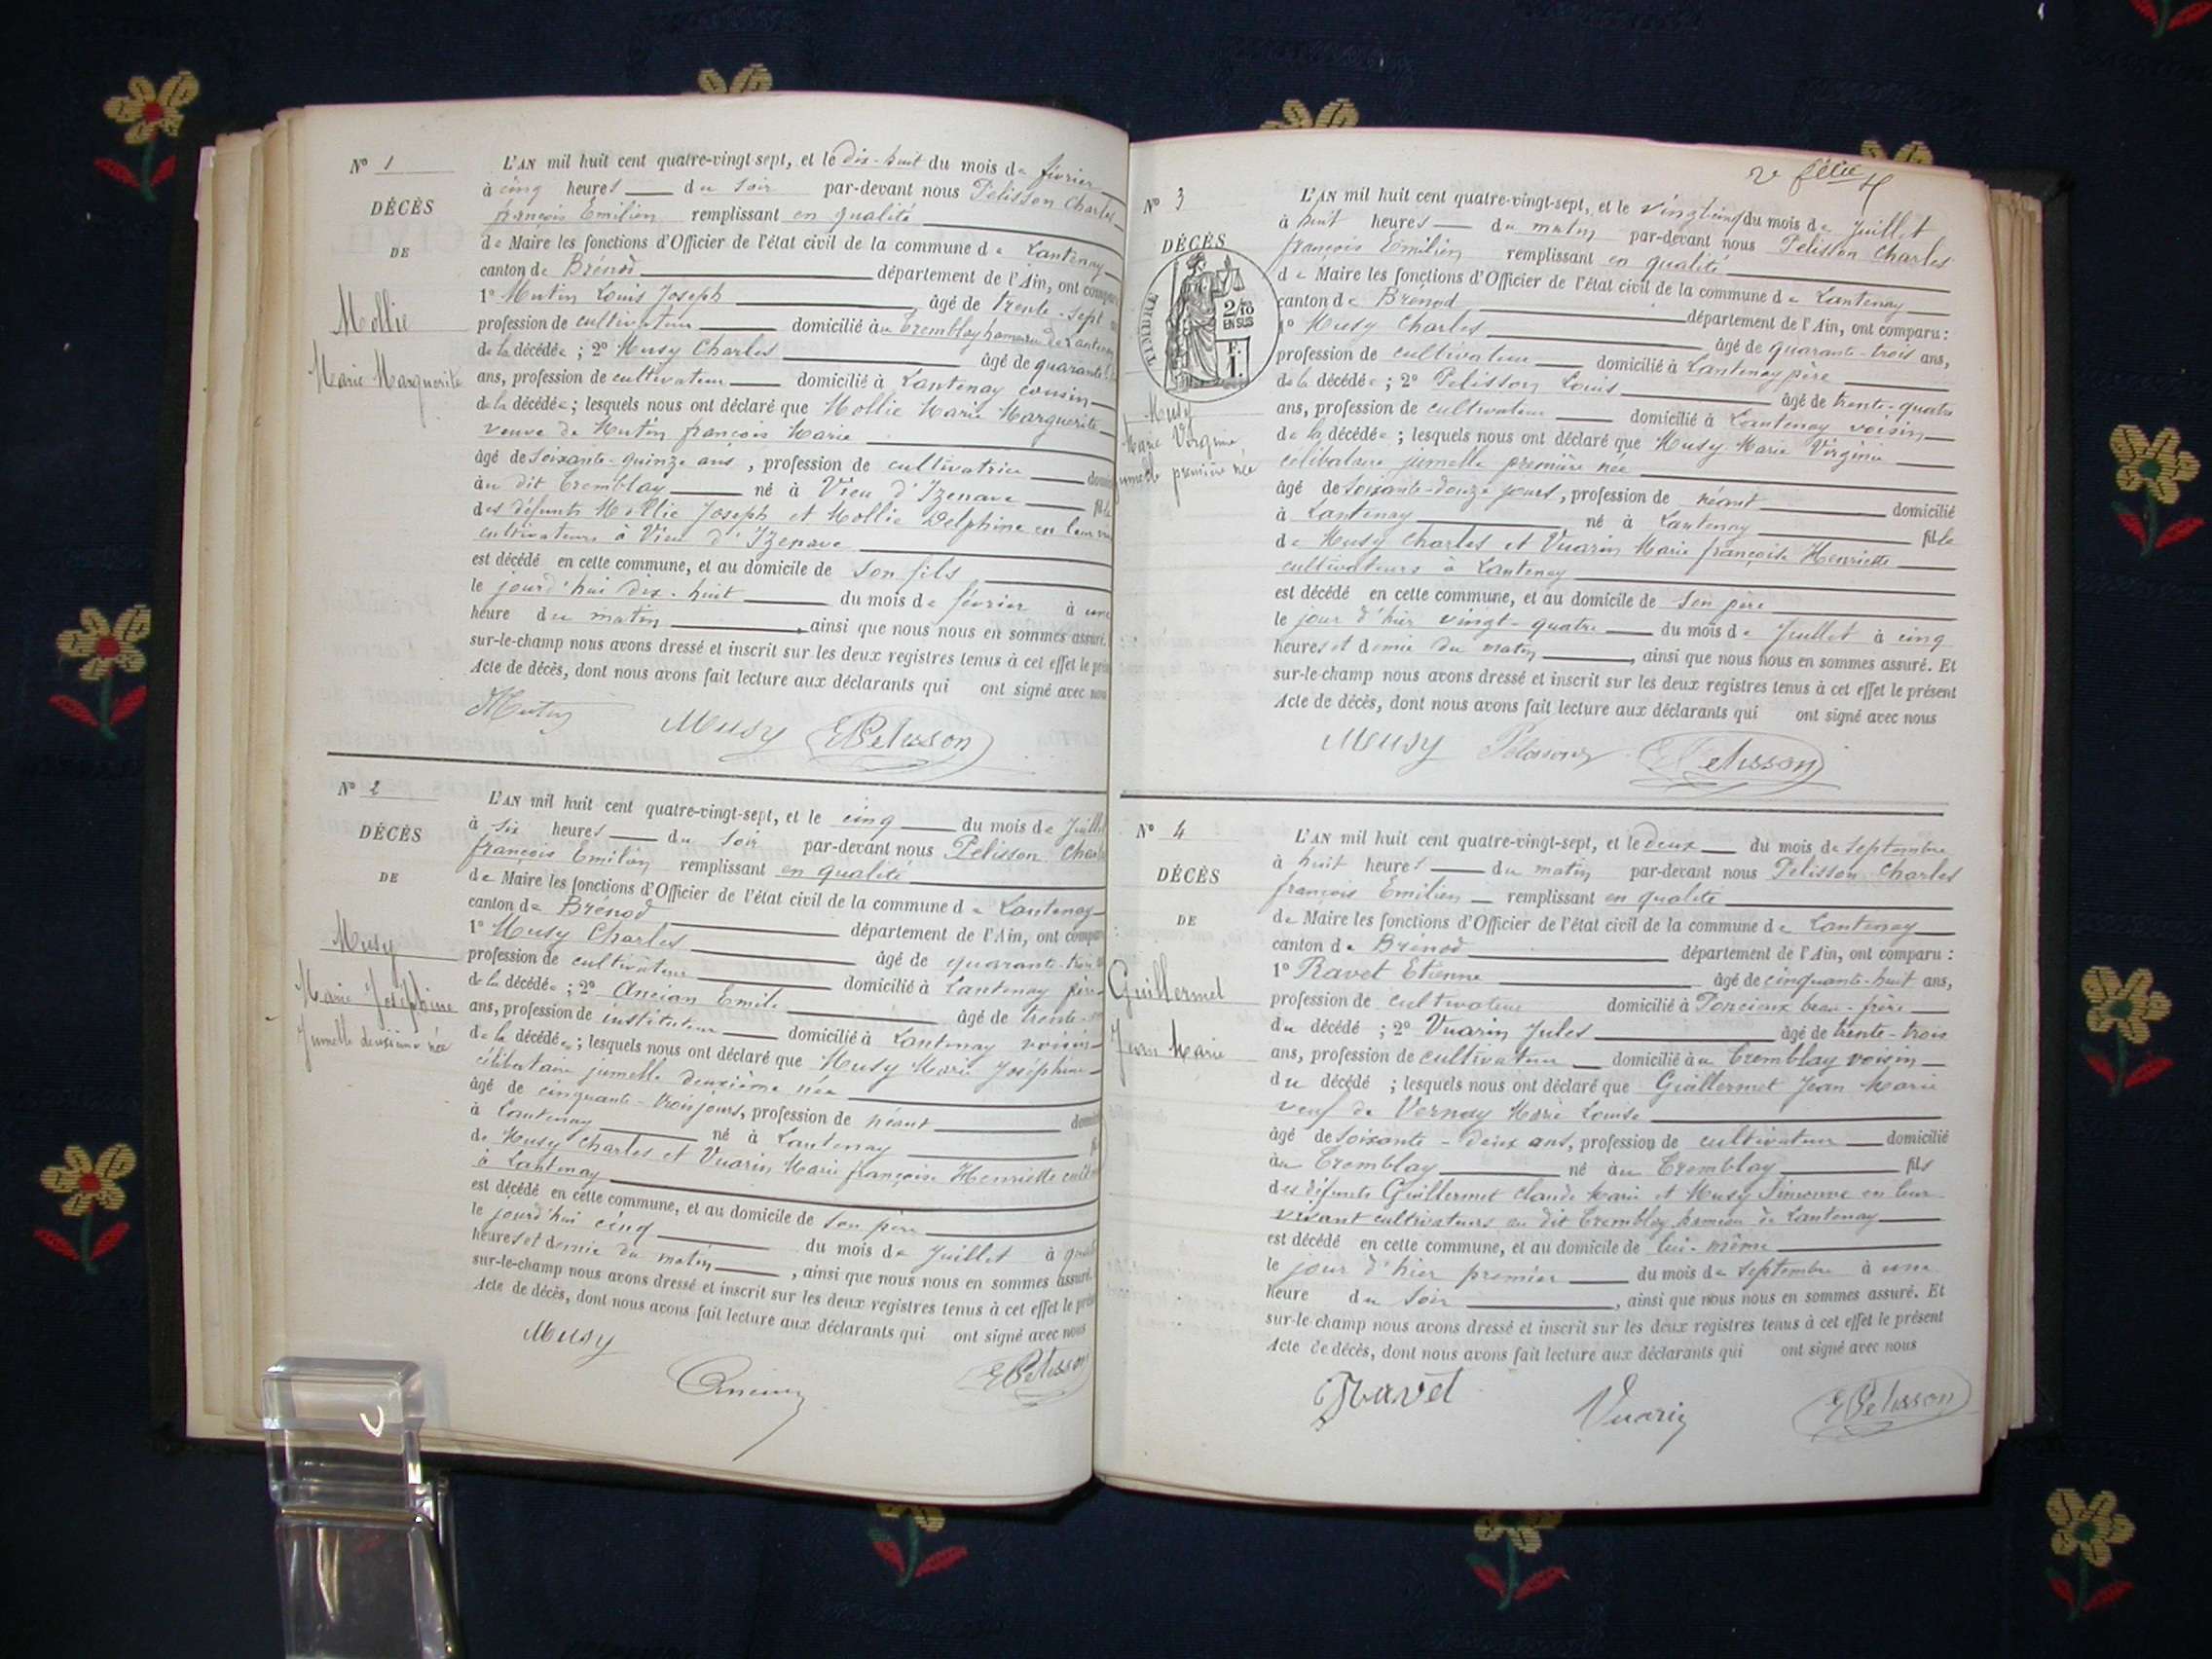 N° 1
DÉCÈS
DE
Mollie
Marie Marguerite
L'AN mil huit cent quatre-vingt sept, et le dix-huit du mois de février
à cinq heures du soir par-devant nous Pelisson Charles
françois Emilien remplissant en qualité
de Maire les fonctions d'Officier de l'état civil de la commune de Lantenay
canton de Brénod département de l'Ain, ont
1° Mutin Louis Joseph âgé de trente-sept
profession de cultivateur domicilié au Tremblay hameau de
de la décédée ; 2° Musy Charles âgé de quarante
ans, profession de cultivateur domicilié à Lantenay cousin
de la décédée ; lesquels nous ont déclaré que Mollie Marie Marguerite
veuve de Mutin françois Marie
âgé de soixante-quinze ans, profession de cultivatrice
au dit Tremblay né à Vieu d'Izenave
des défunts Mollie Joseph et Mollie Delphine en leur
cultivateurs à Vieu d'Izenave
est décédé en cette commune, et au domicile de son fils
le jourd'hui dix-huit du mois de février à une
heure du matin, ainsi que nous nous en sommes assuré.
sur-le-champ nous avons dressé et inscrit sur les deux registres tenus à cet effet le
Acte de décès, dont nous avons fait lecture aux déclarants qui ont signé avec nous
Mutin Musy EPelisson
N° 2
DÉCÈS
DE
Musy
Marie Joséphine
Jumelle deuxième née
L'AN mil huit cent quatre-vingt-sept, et le cinq du mois de
à six heures du soir par-devant nous Pelisson
françois Emilien remplissant en qualité
de Maire les fonctions d'Officier de l'état civil de la commune de Lantenay
canton de Brénod département de l'Ain, ont
1° Musy Charles âgé de quarante-trois
profession de cultivateur domicilié à Lantenay père
de la décédée ; 2° Ancian Emile âgé de
ans, profession de instituteur domicilié à Lantenay voisin
de la décédée ; lesquels nous ont déclaré que Musy Marie Joséphine
célibataire jumelle deuxième née
âgé de cinquante-trois jours, profession de néant
à Lantenay né à Lantenay
de Musy Charles et Vuarin Marie françoise Henriette
à Lantenay
est décédé en cette commune, et au domicile de son père
le jourd'hui cinq du mois de Juillet à
heures et demie du matin, ainsi que nous nous en sommes assuré.
sur-le-champ nous avons dressé et inscrit sur les deux registres tenus à cet effet le
Acte de décès, dont nous avons fait lecture aux déclarants qui ont signé avec nous
Musy Ancian EPelisson
N° 3
DÉCÈS
TIMBRE
2/10
EN SUS
F.
1.
Musy
Marie Virginie
jumelle première née
L'AN mil huit cent quatre-vingt-sept, et le vingt cinq du mois de Juillet
à huit heures du matin par-devant nous Pelisson Charles
françois Emilien remplissant en qualité
de Maire les fonctions d'Officier de l'état civil de la commune de Lantenay
canton de Brénod département de l'Ain, ont comparu :
1° Musy Charles âgé de quarante-trois ans,
profession de cultivateur domicilié à Lantenay père
de la décédée ; 2° Pelisson Louis âgé de trente-quatre
ans, profession de cultivateur domicilié à Lantenay voisin
de la décédée ; lesquels nous ont déclaré que Musy Marie Virginie
célibataire jumelle première née
âgé de soixante-douze jours, profession de néant domicilié
à Lantenay né à Lantenay fille
de Musy Charles et Vuarin Marie françoise Henriette
cultivateurs à Lantenay
est décédé en cette commune, et au domicile de son père
le jour d'hier vingt-quatre du mois de Juillet à cinq
heures et demie du matin, ainsi que nous nous en sommes assuré. Et
sur-le-champ nous avons dressé et inscrit sur les deux registres tenus à cet effet le présent
Acte de décès, dont nous avons fait lecture aux déclarants qui ont signé avec nous
Musy Pelisson EPelisson
N° 4
DÉCÈS
DE
Guillermet
Jean Marie
L'AN mil huit cent quatre-vingt-sept, et le deux du mois de septembre
à huit heures du matin par-devant nous Pelisson Charles
françois Emilien remplissant en qualité
de Maire les fonctions d'Officier de l'état civil de la commune de Lantenay
canton de Brénod département de l'Ain, ont comparu :
1° Ravet Etienne âgé de cinquante-huit ans,
profession de cultivateur domicilié à Poncieux beau-frère
du décédé ; 2° Vuarin Jules âgé de trente-trois
ans, profession de cultivateur domicilié au Tremblay voisin
du décédé ; lesquels nous ont déclaré que Guillermet Jean Marie
veuf de Vernay Marie Louise
âgé de soixante-deux ans, profession de cultivateur domicilié
au Tremblay né au Tremblay fils
des défunts Guillermet Claude Marie et Musy en leur
vivant cultivateurs au dit Tremblay hameau de Lantenay
est décédé en cette commune, et au domicile de lui-même
le jour d'hier premier du mois de septembre à une
heure du soir, ainsi que nous nous en sommes assuré. Et
sur-le-champ nous avons dressé et inscrit sur les deux registres tenus à cet effet le présent
Acte de décès, dont nous avons fait lecture aux déclarants qui ont signé avec nous
Ravet Vuarin EPelisson